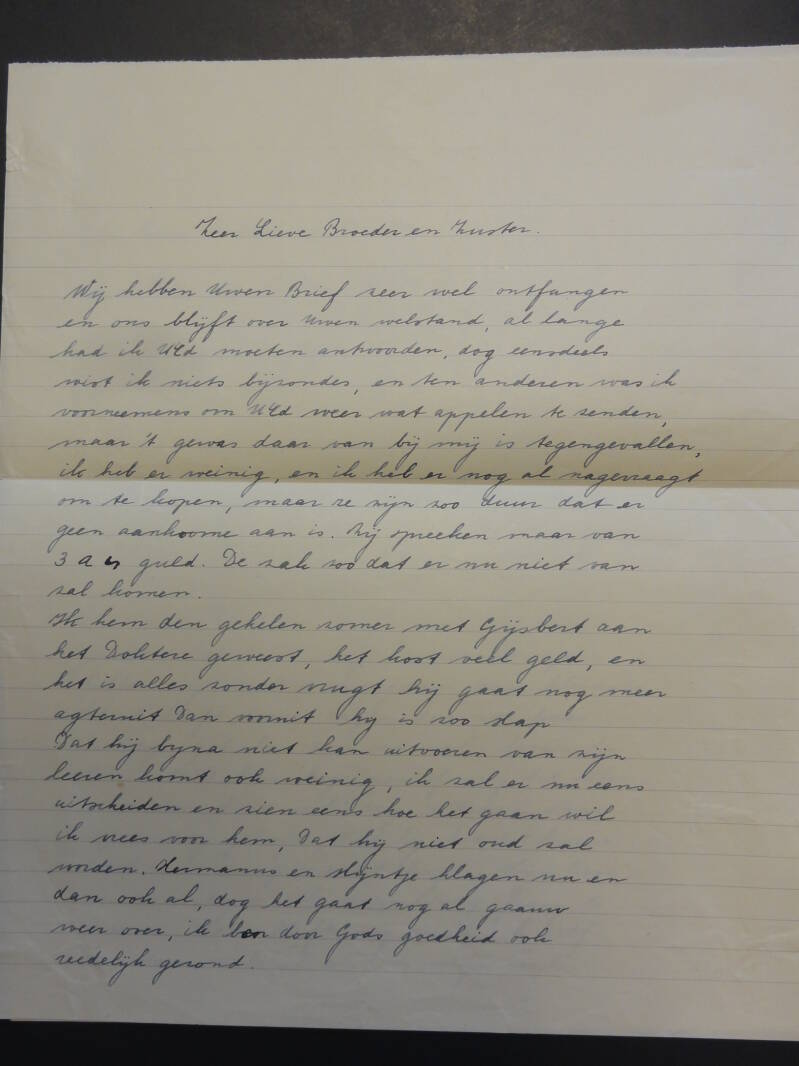 Zeer Lieve Broeder en Zuster.
Wij hebben Uwen Brief zeer wel ontfangen
en ons blijft over Uwen welstand, al lange
had ik UEd moeten antwoorden, dog eensdeels
wist ik niets bijzondes, en ten anderen was ik
voorneemens om UEd weer wat appelen te senden,
maar 't gewas daar van bij mij is tegengevallen,
ik heb er weinig, en ik heb er nog al nagevraagt
om te kopen, maar ze zijn zoo duur dat er
geen aankoome aan is. Zij spreeken maar van
3 a 4 guld. De zak zoo dat er nu niet van
sal komen.
Ik hem den gehelen zomer met Gijsbert aan
het Doktere geweest, het kost veel geld, en
het is alles zonder vrugt hij gaat nog meer
agteruit Dan vooruit hy is zoo slap
Dat hij byna niet kan uitvoeren van zijn
leeren komt ook weinig, ik sal er nu eens
uitscheiden en zien eens hoe het gaan wil
ik vrees voor hem, Dat hij niet oud sal
worden. Hermanus en Stijntje klagen nu en
dan ook al, dog het gaat nog al gaauw
weer over, ik ben door Gods goedheid ook
reedelijk gezond.